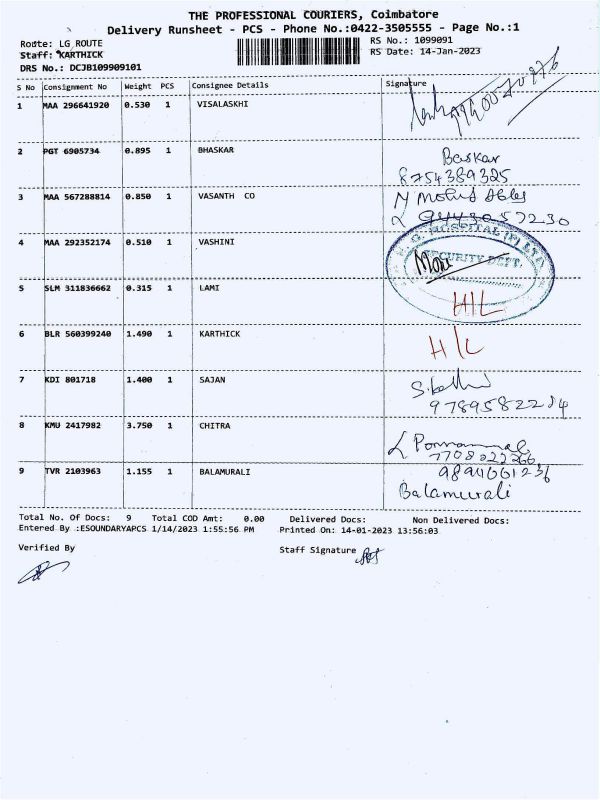 THE PROFESSIONAL COURIERS, Coimbatore
Delivery Runsheet - PCS - Phone No.:0422-3505555 - Page No.:1
Route: LG ROUTE
RS No.: 1099091
Staff: KARTHICK
RS Date: 14-Jan-2023
DRS No.: DCJB109909101
S No Consignment No Weight PCS Consignee Details Signature
1 MAA 296641920 0.530 1 VISALASKHI
2 PGT 6905734 0.895 1 BHASKAR
Baskar
8754389325
3 MAA 567288814 0.850 1 VASANTH CO
9443057230
4 MAA 292352174 0.510 1 VASHINI
HOSPITAL (P) LTD
SECURITY DEPT.
5 SLM 311836662 0.315 1 LAMI
H/L
6 BLR 560399240 1.490 1 KARTHICK
H/L
7 KDI 801718 1.400 1 SAJAN
9789582284
8 KMU 2417982 3.750 1 CHITRA
Ponnammal
9 TVR 2103963 1.155 1 BALAMURALI
Balamurali
Total No. Of Docs: 9 Total COD Amt: 0.00 Delivered Docs: Non Delivered Docs:
Entered By :ESOUNDARYAPCS 1/14/2023 1:55:56 PM Printed On: 14-01-2023 13:56:03
Verified By
Staff Signature